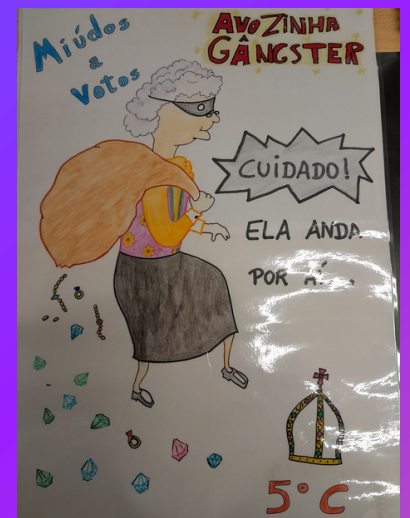 Miúdos
a
Votos
AVOZINHA
GÂNGSTER
CUIDADO!
ELA ANDA
POR AÍ...
5º C